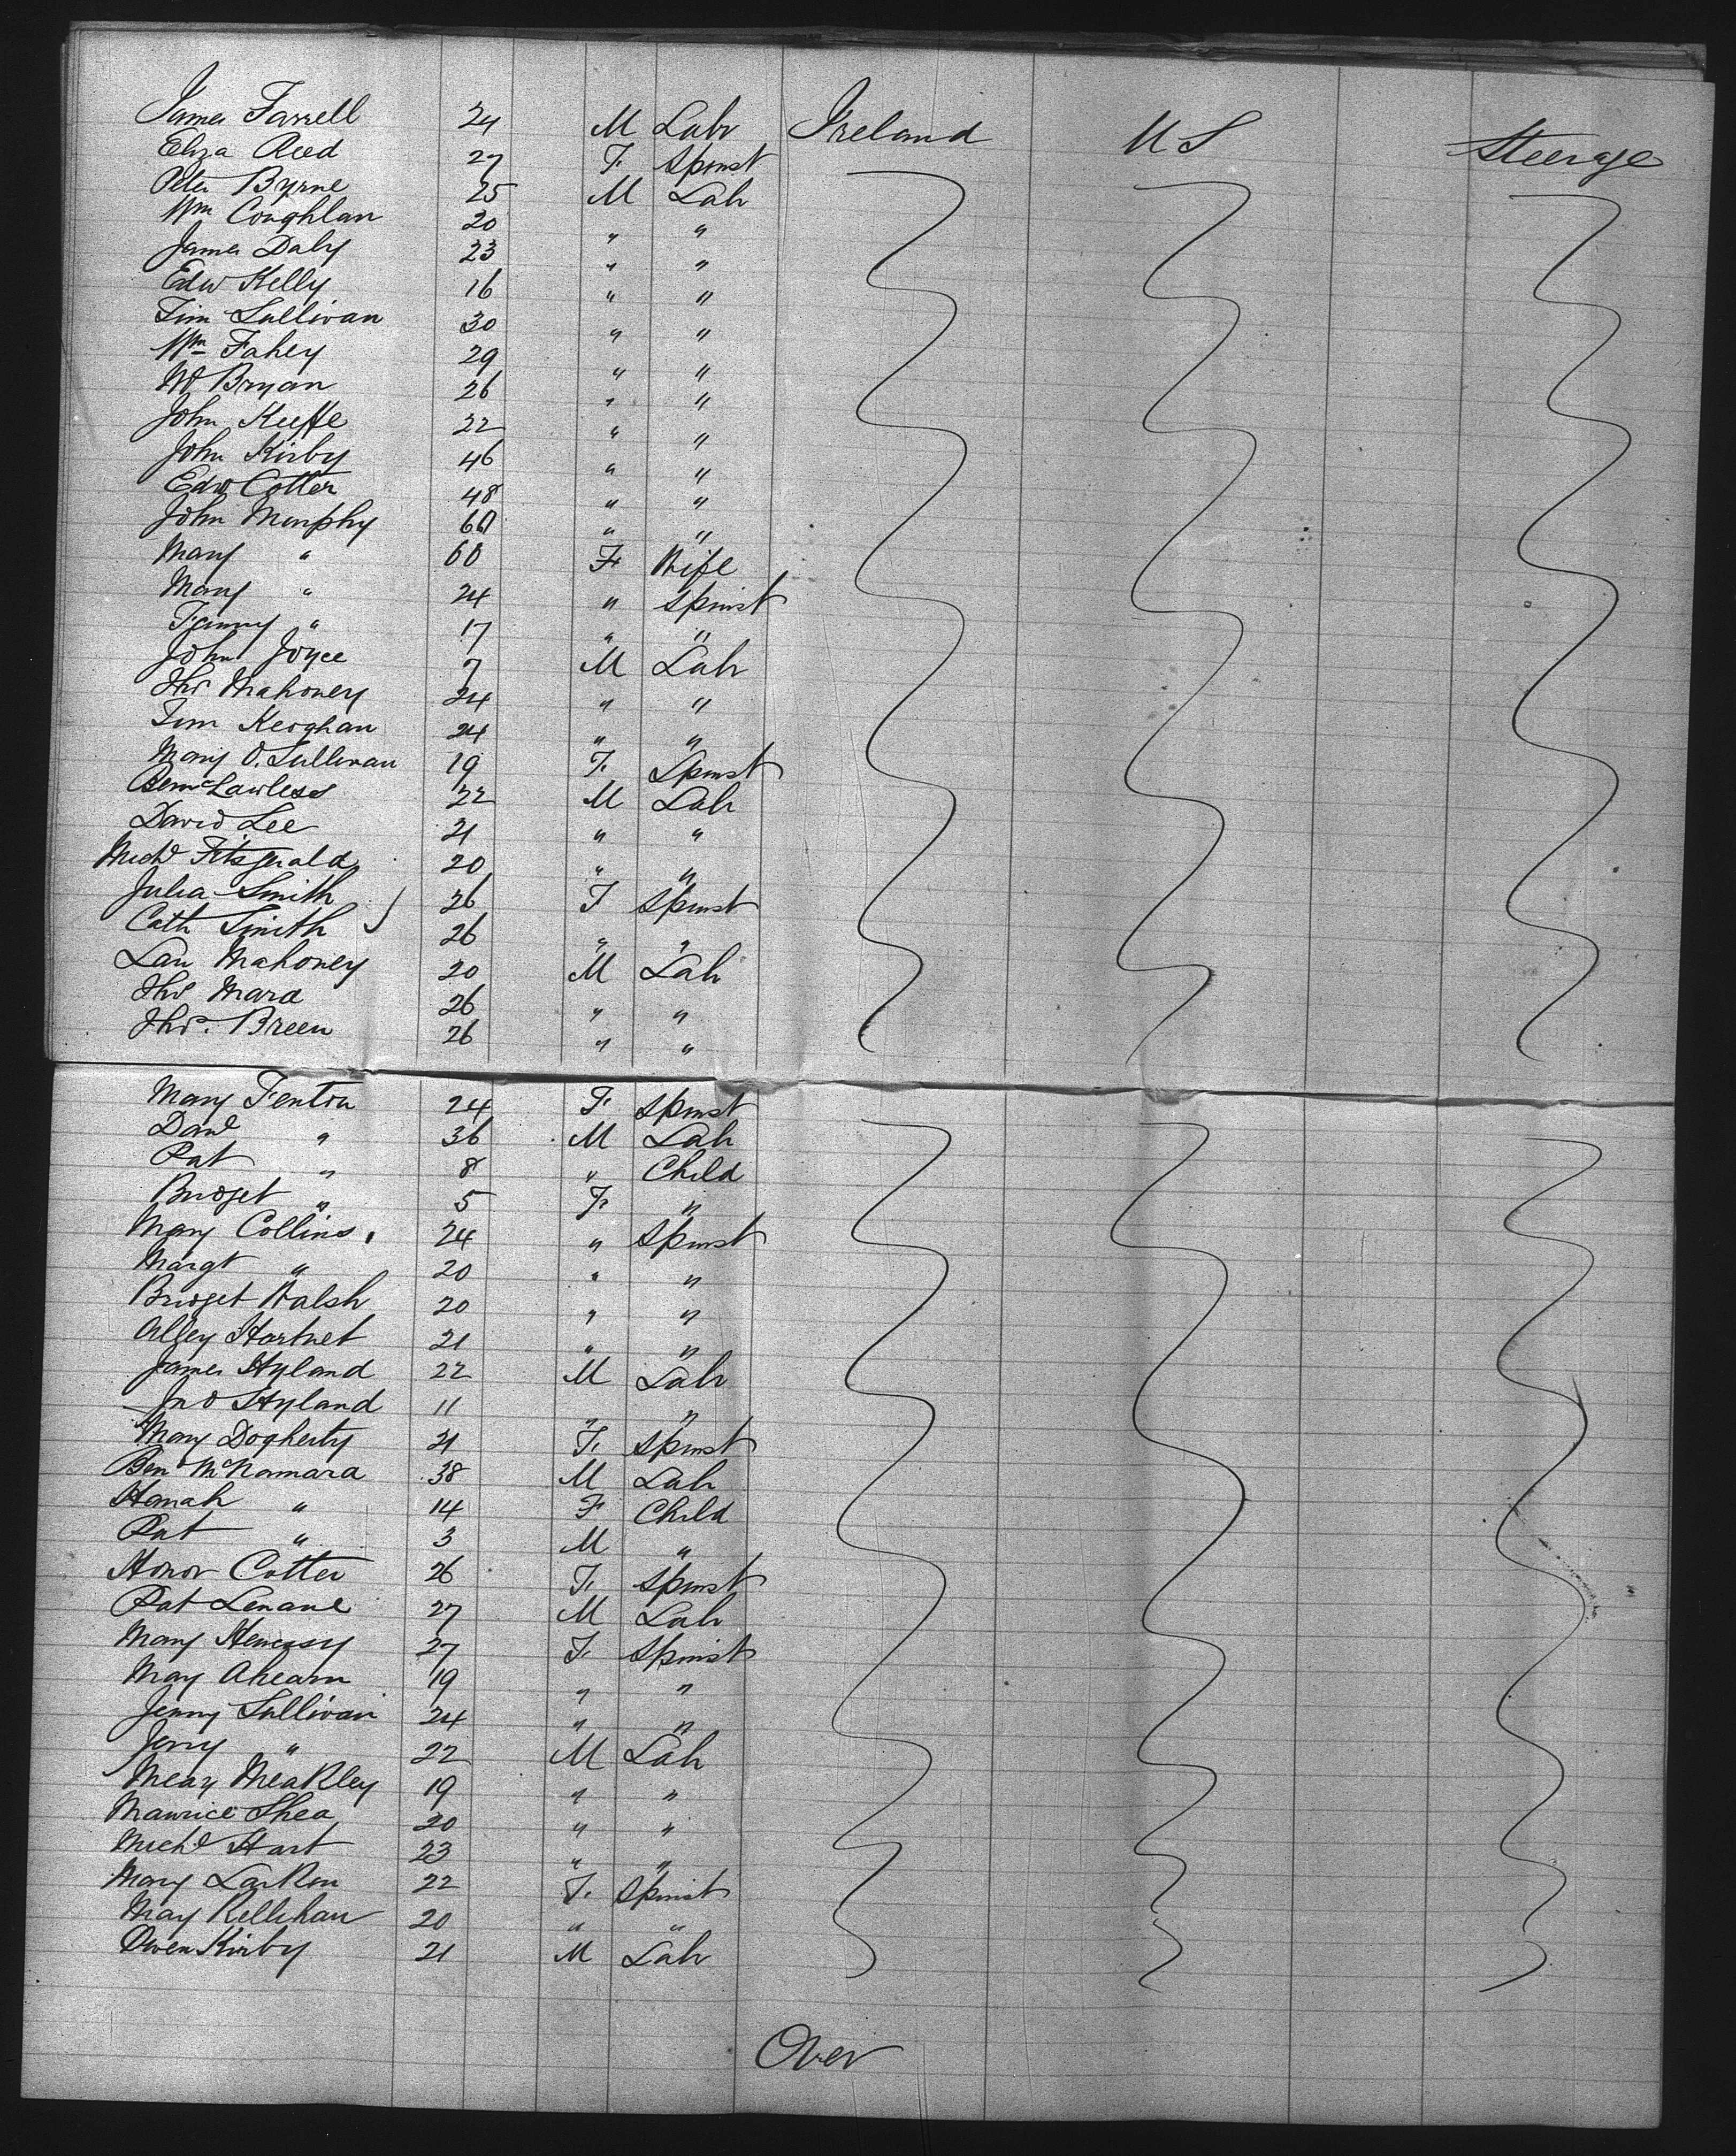 James Farrell 24 M Labr Ireland U S Steerage
Eliza Reed 27 F Spinst
Peter Byrne 25 M Labr
Wm Coughlan 20 " "
James Daly 23 " "
Edw Kelly 16 " "
Tim Sullivan 30 " "
Wm Fahey 29 " "
W Bryan 26 " "
John Keeffe 22 " "
John Kirby 46 " "
Edw Cotter 48 " "
John Murphy 60 " "
Mary " 60 F Wife
Mary " 24 " Spinst
Fanny " 17 " "
John Joyce 7 M Labr
Thos Mahoney 24 " "
Tim Keoghan 24 " "
Mary O. Sullivan 19 F Spinst
Lawless 22 M Labr
David Lee 21 " "
Michl Fitzgerald 20 " "
Julia Smith 26 F Spinst
Cath Smith 26 " "
Lau Mahoney 20 M Labr
Thos Mara 26 " "
Thos. Breen 26 " "
Mary Fenton 24 F Spinst
Danl " 36 M Labr
Pat " 8 " Child
Bridget " 5 F "
Mary Collins 24 " Spinst
Margt " 20 " "
Bridget Walsh 20 " "
Alley Hartnet 21 " "
James Hyland 22 M Labr
Jno Hyland 11 " "
Mary Dogherty 21 F Spinst
Ben McNamara 38 M Labr
Hanah " 14 F Child
Pat " 3 M "
Honor Cotter 26 F Spinst
Pat Lenane 27 M Labr
Mary Henessy 27 F Spinst
May Ahearn 19 " "
Jenny Sullivan 24 " "
Jerry " 22 M Labr
Meakley 19 " "
Maurice Shea 20 " "
Michl Hart 23 " "
Mary Larkin 22 F Spinst
May Kellihan 20 " "
Owen Kirby 21 M Labr
Over